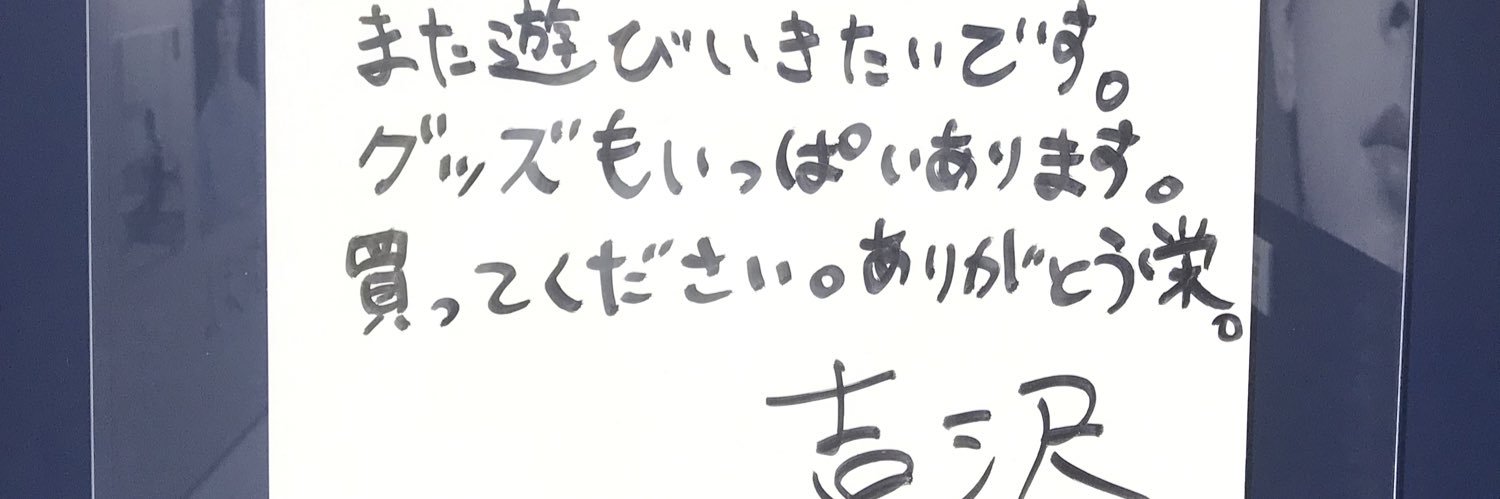 また遊びいきたいです。
グッズもいっぱいあります。
買ってください。ありがとう栄。
吉沢